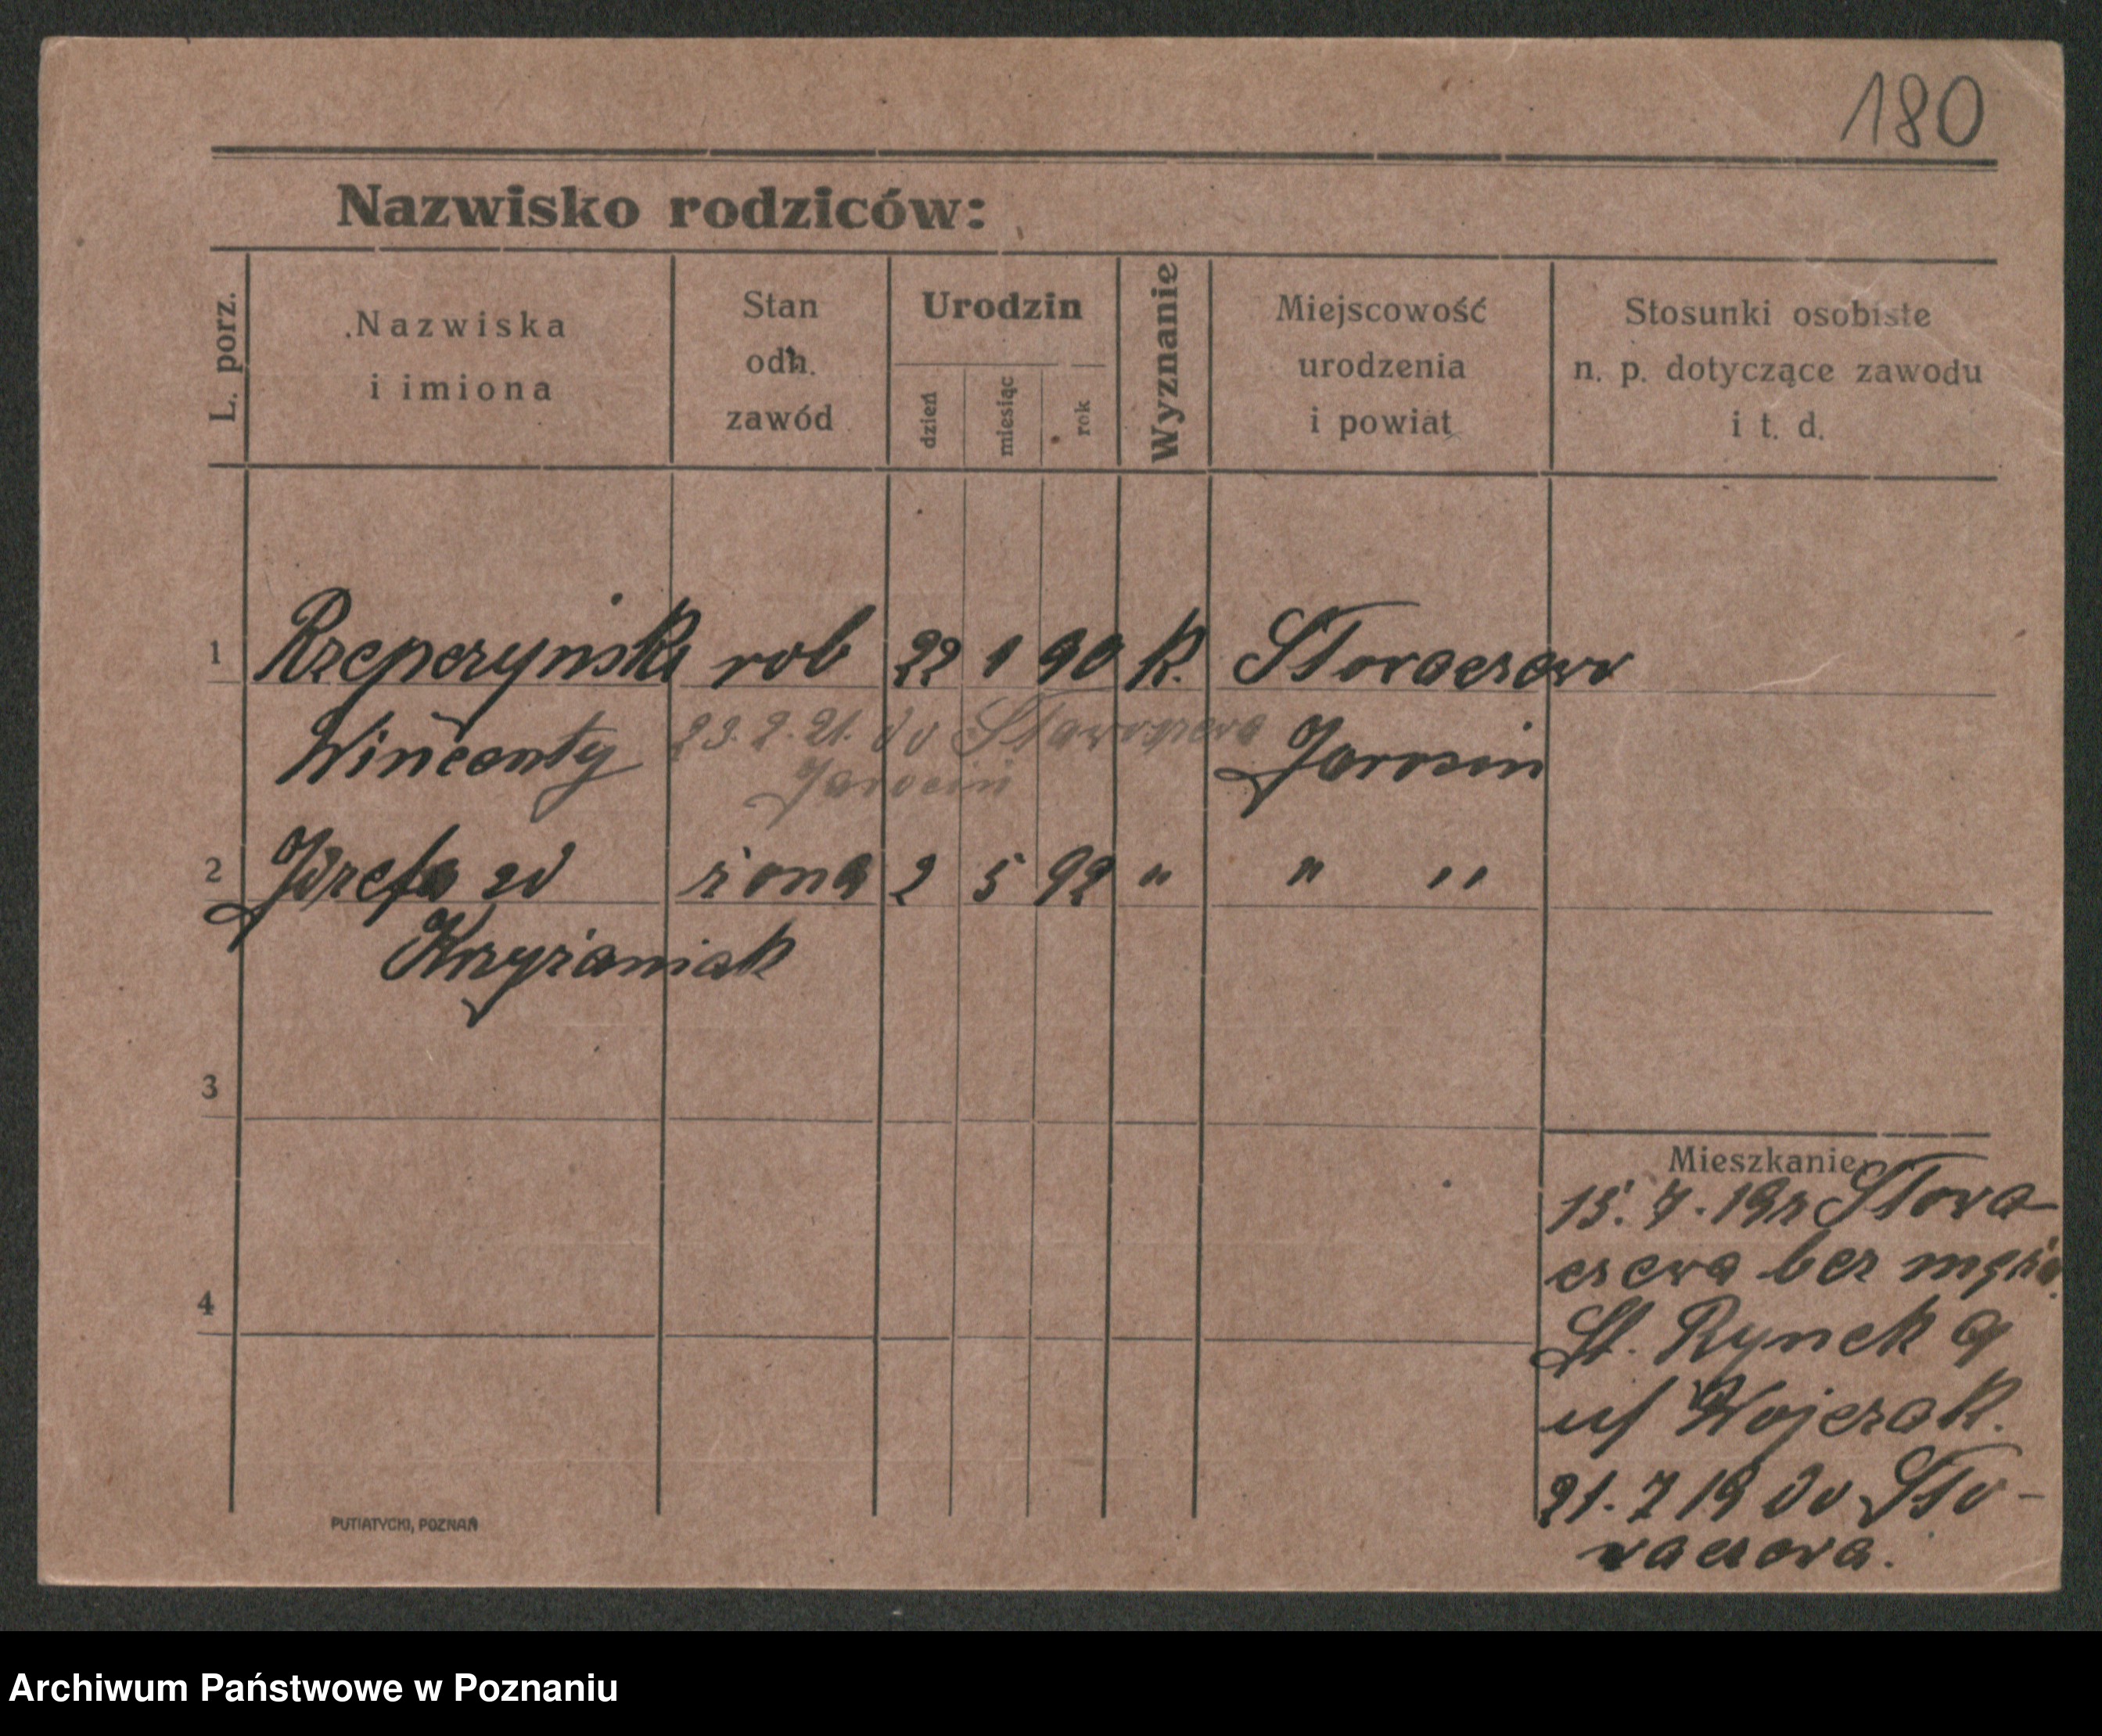 180
Nazwisko rodziców:
L. porz.
Nazwiska
i imiona
Stan
odn.
zawód
Urodzin
dzień
miesiąc
rok
Wyznanie
Miejscowość
urodzenia
i powiat
Stosunki osobiste
n. p. dotyczące zawodu
i t. d.
1 Rzepczyński rob 22 1 90 K.
Wincenty 23.2.21. do
Jarocin
2 Józefa zd żona 2 5 92 " " "
Krzyżaniak
3
4
Mieszkanie
15. 7. 19
bez
St. Rynek 9
u/ Wojczak.
21. 7 19 do
PUTIATYCKI, POZNAŃ
Archiwum Państwowe w Poznaniu